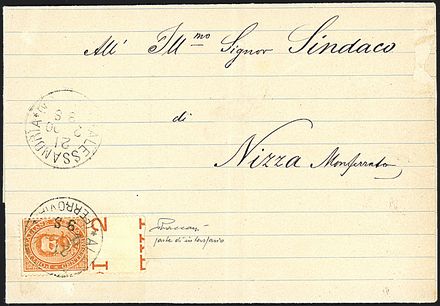 All' Ill.mo Signor Sindaco
di
Nizza Monferrato
ALESSANDRIA
21
2
90
9 S
FERROVIA
9 S
parte di interspazio